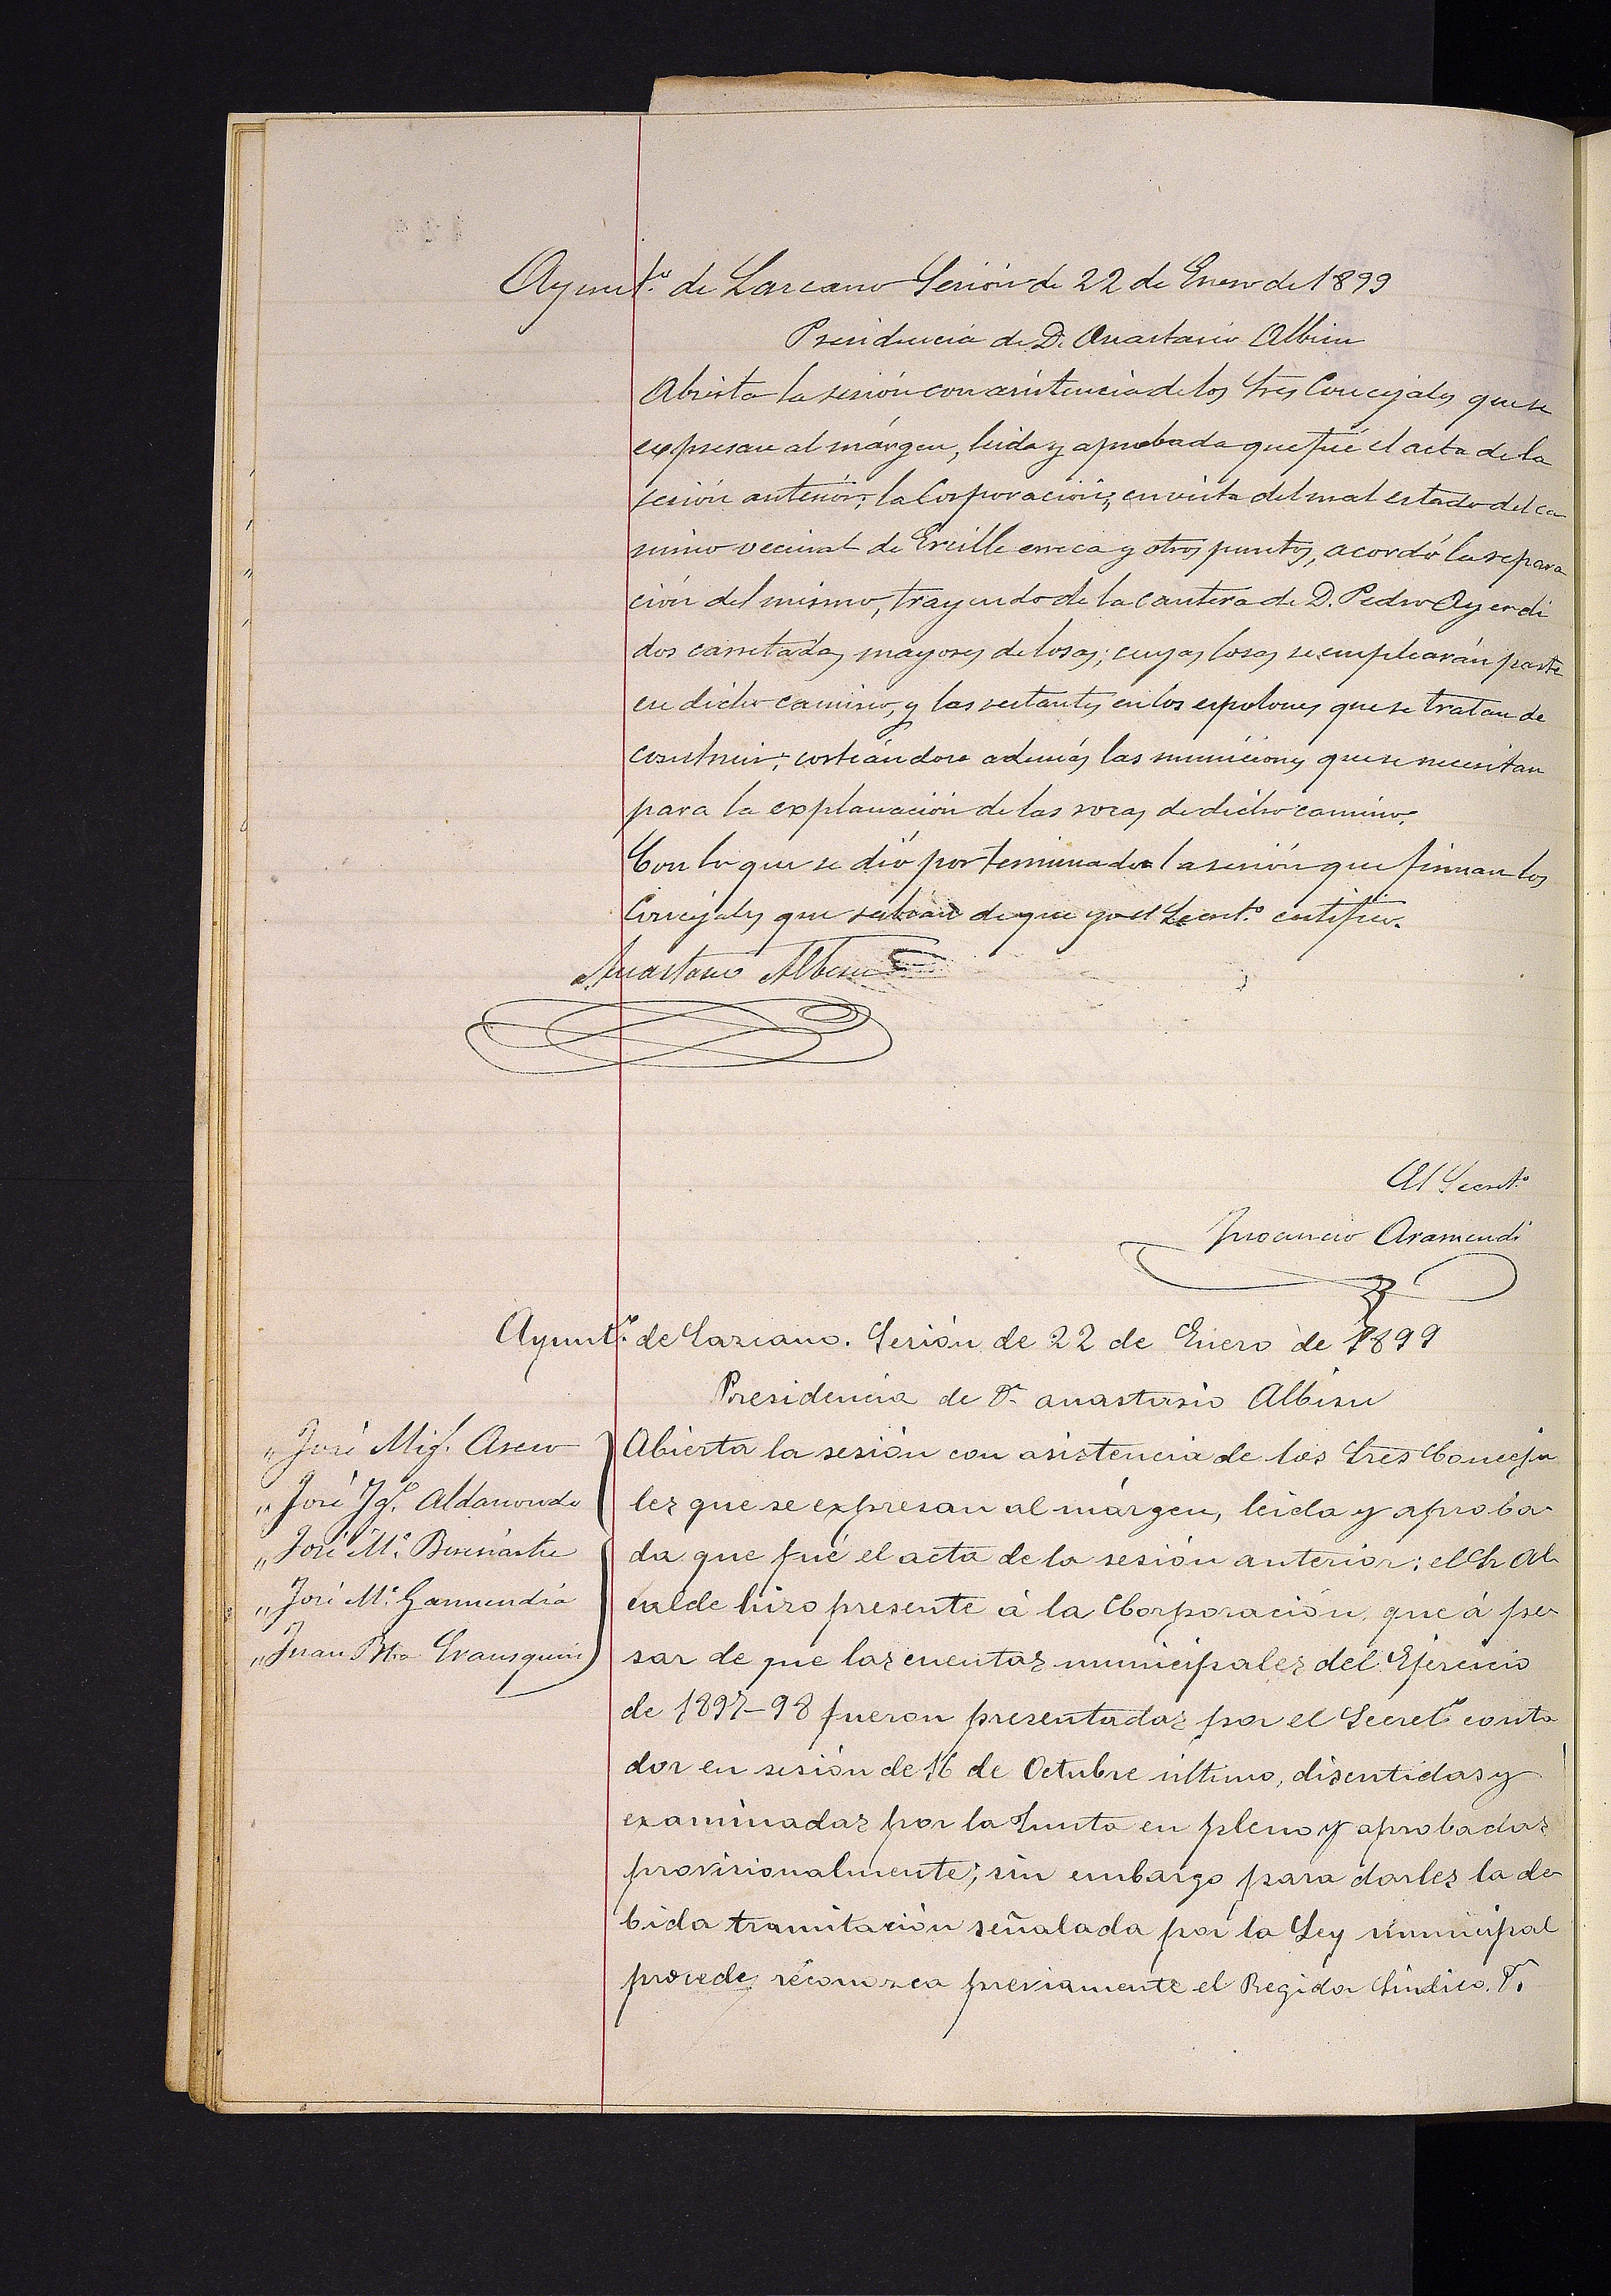 Ayunt.º de Lazcano Sesión de 22 de Enero de 1899
Presidencia de D. Anastasio Albisu
Abierta la sesión con asistencia de los Sres Concejales que se
expresan al márgen, leida y aprobada que fué el acta de la
sesión anterior; la Corporación, en vista del mal estado del ca
mino vecinal de Ercille erreca y otros puntos, acordó la repara
ción del mismo, trayendo de la cantera de D. Pedro Ayerdi
dos carretadas mayores de losas; cuyas losas se emplearán parte
en dicho camino, y las restantes en los espolones que se tratan de
construir; costeándose además las municiones que se necesitan
para la explanación de las rocas de dicho camino.
Con lo que se dió por terminada la sesión que firman los
Concejales que sabían de que yo el Secret.º certifico.
Anastasio Albisu
El Secret.º
Inocencio Aramendi
Ayunt.º de Lazcano. Sesión de 22 de Enero de 1899
Presidencia de Dⁿ anastasio Albisu
„ José Mig.l Aseno
„ José Ig.º Aldanondo
„ José M.ª
„ José M.ª Garmendia
„ Juan Bta Irausquin
Abierta la sesión con asistencia de los Sres Conceja
les que se expresan al márgen, leida y aproba-
da que fué el acta de la sesión anterior: el Sr Al-
calde hizo presente á la Corporación, que á pe-
sar de que las cuentas municipales del Ejercicio
de 1897-98 fueron presentadas por el Secretº conta
dor en sesión de 16 de Octubre ultimo, discutidas y
examinadas por la Junta en pleno y aprobadas
provisionalmente; sin embargo para darles la de-
bida tramitación señalada por la Ley municipal
procede, reconozca previamente el Regidor Síndico. Dⁿ